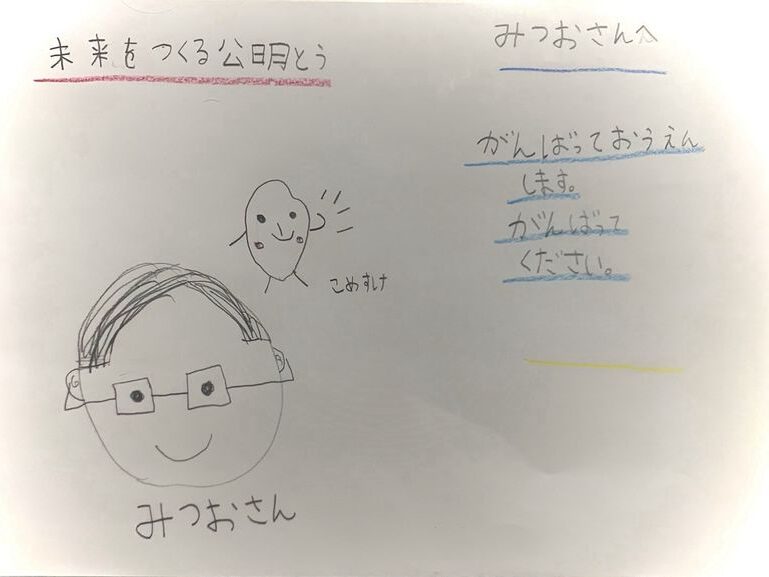 未来をつくる公明とう
みつおさんへ
がんばっておうえん
します。
がんばって
ください。
こめすけ
みつおさん